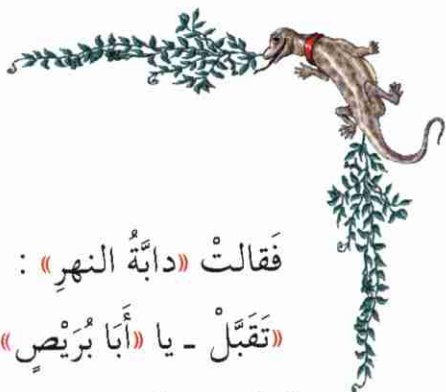 فَقالتْ «دابَّةُ النهرِ» :
«تَقَبَّلْ - يا «أَبَا بُرَيْصٍ»